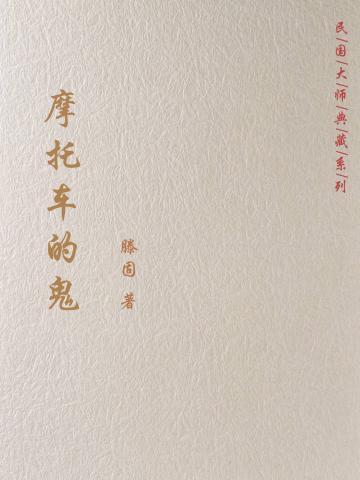 民|国|大|师|典|藏|系|列
摩托车的鬼
滕固 著